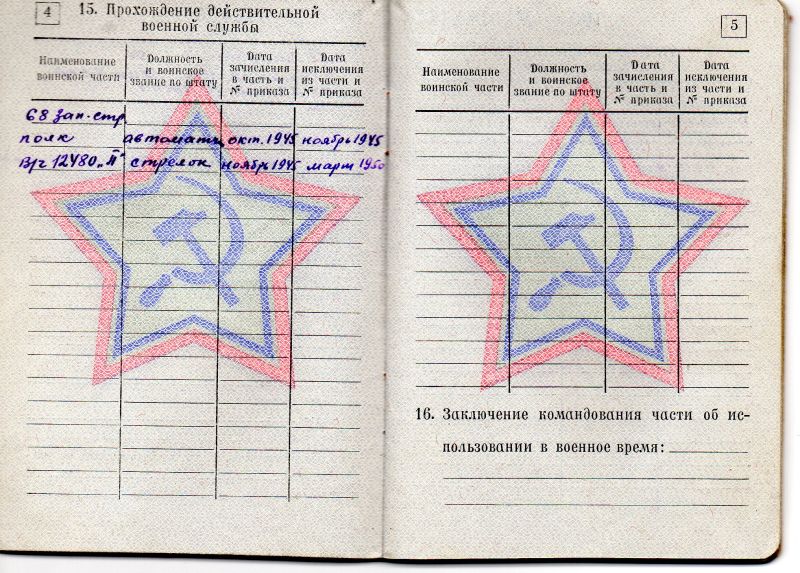 4
15. Прохождение действительной
военной службы
Наименование
воинской части
Должность
и воинское
звание по штату
Дата
зачисления
в часть и
№ приказа
Дата
исключения
из части и
№ приказа
68 зап. стр.
полк автоматч. окт. 1945 ноябрь 1945
В/ч 12480 „Я" стрелок ноябрь 1945 март 1950
5
Наименование
воинской части
Должность
и воинское
звание по штату
Дата
зачисления
в часть и
№ приказа
Дата
исключения
из части и
№ приказа
16. Заключение командования части об ис-
пользовании в военное время: